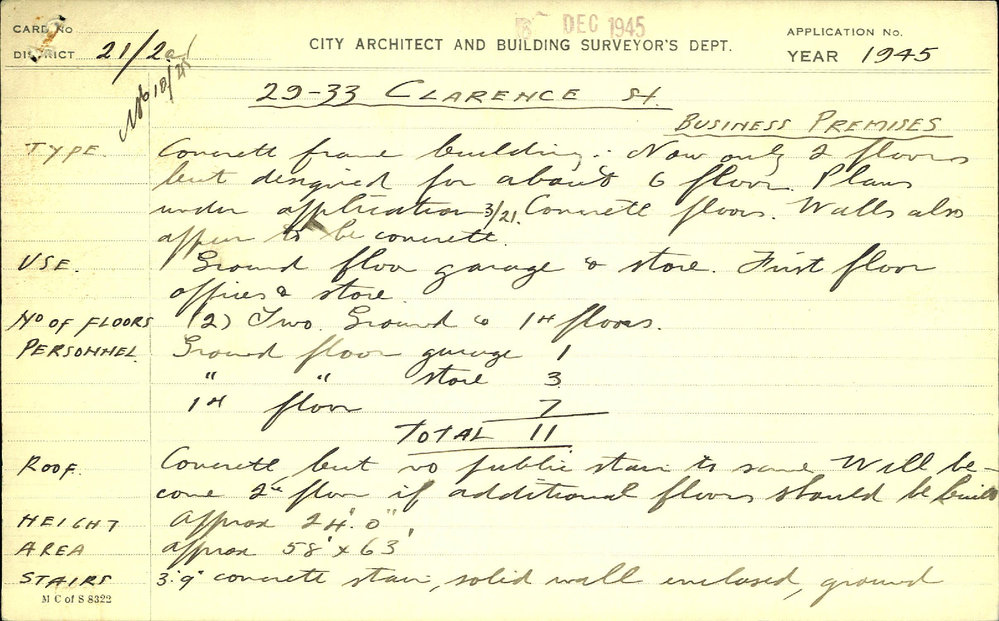 CARD No
DEC 1945
APPLICATION No.
DISTRICT 21/2
CITY ARCHITECT AND BUILDING SURVEYOR'S DEPT.
YEAR 1945
29-33 CLARENCE St.
BUSINESS PREMISES
TYPE. Concrete frame building. Now only 2 floors
but designed for about 6 floors. Plans
under application 3/21. Concrete floors. Walls also
appear to be concrete.
USE. Ground floor garage & store. First floor
offices & store.
No OF FLOORS (2) Two. Ground & 1st floors.
PERSONNEL. Ground floor garage 1
" " store 3
1st floor 7
TOTAL 11
ROOF. Concrete but no public stair to same Will be-
come 2nd floor if additional floors should be built
HEIGHT Approx 24'.0"
AREA approx 58' x 63'
STAIRS 3'.9" concrete stair, solid wall enclosed, ground
M C of S 8322